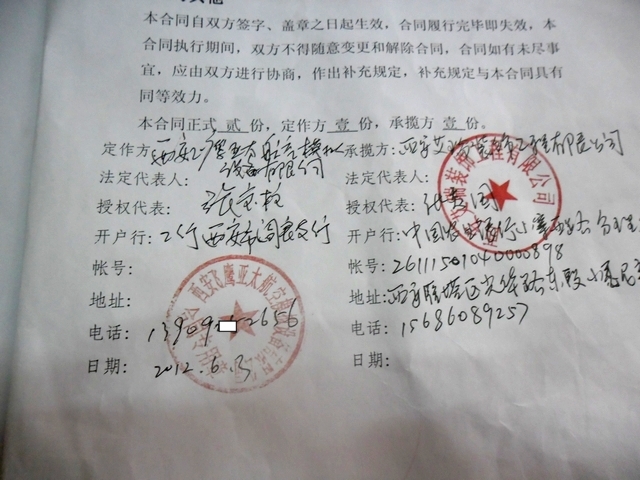 本合同自双方签字、盖章之日起生效，合同履行完毕即失效，本
合同执行期间，双方不得随意变更和解除合同，合同如有未尽事
宜，应由双方进行协商，作出补充规定，补充规定与本合同具有
同等效力。
本合同正式 贰 份，定作方 壹 份，承揽方 壹 份。
定作方：西安飞鹰亚太航空模拟
设备有限公司
法定代表人：
授权代表：
开户行：工行西安市阎良支行
帐号：
地址：
电话：13909 2656
日期：2012.6.
承揽方：西安 工程有限公司
法定代表人：
授权代表：
开户行：中国农业银行小寨
帐号：26111501040000898
地址：西安雁塔区 路东段
电话：15686089257
日期：
西安飞鹰亚太航空模拟设备有限公司
装饰工程有限公司